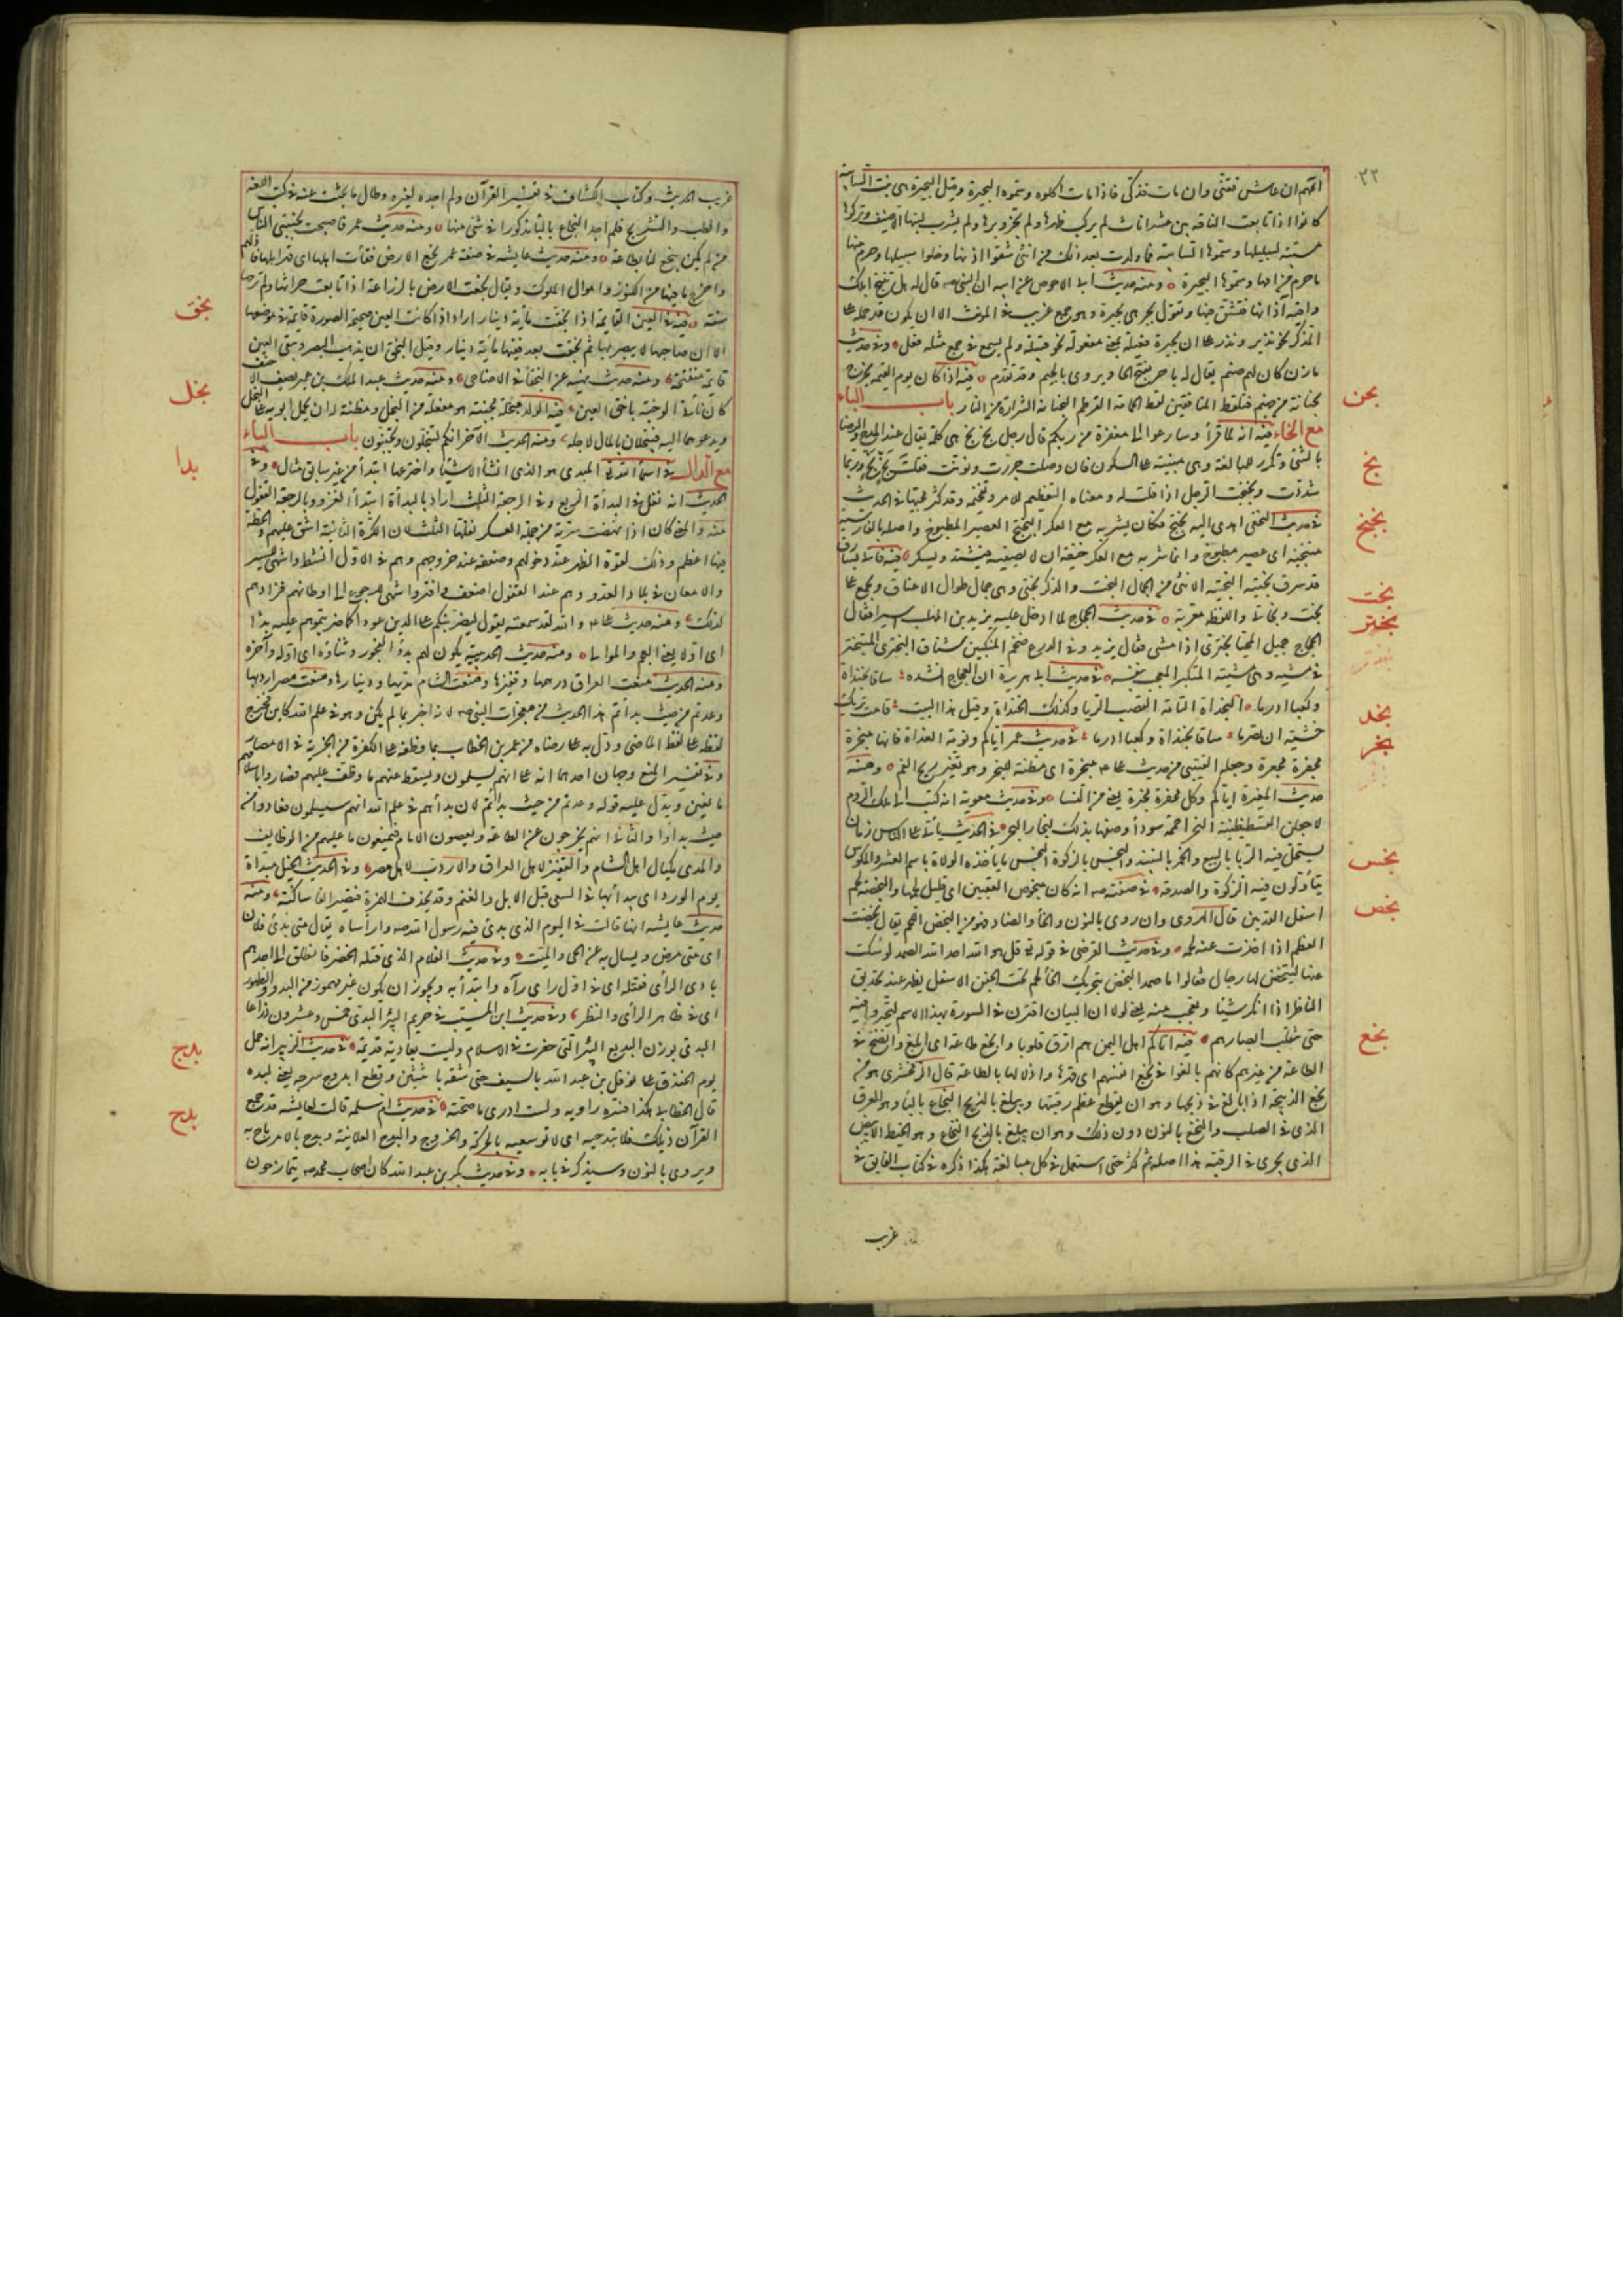 ٣٢
اللهم ان عاش فقنى وان مات فذكى فاذا مات اكلوه وسموه البحيرة وقيل البحيرة هى بنت السائبة
كانوا اذا تابعت الناقة بين عشر اناث لم يركب ظهرها ولم يجز وبرها ولم يشرب لبنها الا ضيف وتركوها
مسيبة لسبيلها وسموها السائبة فما ولدت بعد ذلك من انثى شقوا اذنها وخلوا سبيلها وحرم منها
ما حرم من امها وسموها البحيرة ومنه حديث ابى الاحوص عن ابيه ان النبى صه قال له هل تنتج ابلك
وافية آذانها فتشق فيها وتقول بحر هى جمع بحيرة وهو جمع غريب فى المونث الا ان يكون قد حمله على
المذكر نحو نذير ونذر على ان بحيرة فعيلة بمعنى مفعولة نحو قتيلة ولم يسمع فى جمع مثله فعل وفى حديث
مازن كان لهم صنم يقال له باحر بفتح الحا ويروى بالجيم وقد تقدم فيه اذا كان يوم القيمة يخرج
بحنانة من جهنم فتلقط المنافقين لقط الحمامة القرطم البحنانة الشرارة من النار باب الباء
مع الخاء فيه انه لما قرأ وسارعوا الى مغفرة من ربكم قال رجل بخ بخ هى كلمة يقال عند المدح والرضا
بالشئ وتكرر للمبالغة وهى مبنية على السكون فان وصلت جررت ونونت فقلت بخ بخ وربما
شددت وبخبخت الرجل اذا قلت له ومعناه التعظيم للامر وتفخيمه وقد كثر مجيئها فى الحديث
فى حديث النخعى اهدى اليه بختج فكان يشربه مع العكر البختج العصير المطبوخ واصله بالفارسية
ميبخته اى عصير مطبوخ وانما شربه مع العكر خيفة ان لا يصفيه فيشتد ويسكر فيه فاتى بسارق
قد سرق بختية البختية الانثى من الجمال البخت والذكر بختى وهى جمال طوال الاعناق ويجمع على
بخت وبخاتى واللفظة معربة فى حديث الحجاج لما ادخل عليه يزيد بن المهلب اسيرا فقال
الحجاج جميل المحيا بخترى اذا مشى فقال يزيد وفى الدرع ضخم المنكبين شناق البخترى المتبختر
فى مشيه وهى مشية المتكبر المعجب بنفسه فى حديث ابى هريرة ان العجاج انشده ساقا بخنداة
وكعبا ادرما البخنداة التامة القصب الريا وكذلك الخبنداة وقيل هذا البيت قامت تريك
خشية ان تصرما ساقا بخنداة وكعبا ادرما فى حديث عمر اياكم ونومة الغداة فانها مبخرة
مجفرة مجعرة وجعله القتيبى من حديث على مبخرة اى مظنة للبخر وهو تغير ريح الفم ومنه
حديث المغيرة اياكم وكل مجفرة مبخرة يعنى من النسا وفى حديث معوية انه كتب الى ملك الروم
لاجعلن القسطنطينية البخرا حممة سوداء وصفها بذلك لبخار البحر فى الحديث يأتى على الناس زمان
يستحل فيه الربا بالبيع والخمر بالنبيذ والبخس بالزكوة البخس ما يأخذه الولاة باسم العشر والمكوس
يتأولون فيه الزكوة والصدقة فى صفته صه انه كان مبخوص العقبين اى قليل لحمها والبخصة لحم
اسفل القدمين قال الهروى وان روى بالنون والحاء والضاد فهو من النحض اللحم يقال نحضت
العظم اذا اخذت عنه لحمه وفى حديث القرضى فى قوله تع قل هو الله احد الله الصمد لو سكت
عنها لتبخص لها رجال فقالوا ما صمد البخص بتحريك الخاء لحم تحت الجفن الاسفل يظهر عند تحديق
الناظر اذا انكر شيئا وتعجب منه يعنى لولا ان البيان اقترن فى السورة بهذا الاسم لتحيروا فيه
حتى تنقلب ابصارهم فيه اتاكم اهل اليمن هم ارق قلوبا وابخع طاعة اى ابلغ وانصح فى
الطاعة من غيرهم كانهم بالغوا فى بخع انفسهم اى قهرها واذلالها بالطاعة قال الزمخشرى هو من
بخع الذبيحة اذا بالغ فى ذبحها وهو ان يقطع عظم رقبتها ويبلغ بالذبح البخاع بالباء وهو العرق
الذى فى الصلب والنخع بالنون دون ذلك وهو ان يبلغ بالذبح النخاع وهو الخيط الابيض
الذى يجرى فى الرقبة هذا اصله ثم كثر حتى استعمل فى كل مبالغة هكذا ذكره فى كتاب الفايق فى
غريب
بحن
بخ
بختج
بخت
بختر
بخند
بخر
بخس
بخص
بخع
غريب الحديث وكتاب الكشاف فى تفسير القرآن ولم اجده لغيره وطال ما بحثت عنه فى كتب اللغة
والطب والتشريح فلم اجد البخاع بالبا مذكورا فى شئ منها ومنه حديث عمر فاصبحت يجنبنى الناس
من لم يكن يبخع لنا بطاعة ومنه حديث عايشة فى صفة عمر بخع الارض فقأت اكلها اى قهر اهلها واذلهم
واخرج ما فيها من الكنوز واموال الملوك ويقال بخعت الارض بالزراعة اذا تابعت حراثتها ولم ترحها
سنة فيه فى العين القائمة اذا بخقت مائة دينار اراد اذا كانت العين صحيحة الصورة قايمة فى موضعها
الا ان صاحبها لا يبصر بها ثم بخقت بعد ففيها مائة دينار وقيل البخق ان يذهب البصر وتبقى العين
قائمة منفتحة ومنه حديث نهيه عن البخقاء فى الاضاحى ومنه حديث عبد الملك بن عمير يصف الاحنف
كان ناتئ الوجنة باخق العين فيه الولد مبخلة مجبنة هو مفعلة من البخل ومظنة لان يحمل ابويه على البخل
ويدعوهما اليه فيبخلان بالمال لاجله ومنه الحديث الآخر انكم لتبخلون وتجبنون باب الباء
مع الدال فى اسماء الله تع المبدئ هو الذى انشأ الاشياء واخترعها ابتداء من غير سابق مثال وفى
الحديث انه نفل فى البدأة الربع وفى الرجعة الثلث اراد بالبدأة ابتداء الغزو وبالرجعة القفول
منه والمعنى كان اذا نهضت سرية من جملة العسكر نفلها الثلث لان الكرة الثانية اشق عليهم والخطة
فيها اعظم وذلك لقوة الظهر عند دخولهم وضعفه عند خروجهم وهم فى الاول انشط واشهى للسير
والامعان فى بلاد العدو وهم عند القفول اضعف وافتر واشهى للرجوع الى اوطانهم فزادهم
لذلك ومنه حديث على والله لقد سمعته يقول ليضربنكم على الدين عودا كما ضربتموهم عليه بدءا
اى اولا يعنى العجم والموالى ومنه حديث الحديبية يكون لهم بدؤ الفجور وثناؤه اى اوله وآخره
ومنه الحديث منعت العراق درهمها وقفيزها ومنعت الشام مديها ودينارها ومنعت مصر اردبها
وعدتم من حيث بدأتم هذا الحديث من معجزات النبى صه لانه اخبر بما لم يكن وهو فى علم الله كاين فخرج
لفظه على لفظ الماضى ودل به على رضاه من عمر بن الخطاب بما وظفه على الكفرة من الجزية فى الامصار
وفى تفسير المنع وجهان احدهما انه على انهم يسلمون ويسقط عنهم ما وظف عليهم فصاروا باسلامهم
مانعين ويدل عليه قوله وعدتم من حيث بدأتم لان بدأهم فى علم الله انهم سيسلمون فعادوا من
حيث بدأوا والثانى انهم يخرجون عن الطاعة ويعصون الامام فيمنعون ما عليهم من الوظايف
والمدى مكيال اهل الشام والقفيز لاهل العراق والاردب لاهل مصر وفى الحديث الخيل مبدأة
يوم الورد اى يبدأ بها فى السقى قبل الابل والغنم وقد يحذف الهمزة فتصير الفا ساكنة ومنه
حديث عايشة انها قالت فى اليوم الذى بدئ فيه رسول الله صه وارأساه يقال متى بدئ فلان
اى متى مرض ويسال به عن الحى والميت وفى حديث الغلام الذى قتله الخضر فانطلق الى احدهم
بادى الرأى فقتله اى فى اول راى رآه وابتدأ به ويجوز ان يكون غير مهموز من البدو والظهور
اى فى ظاهر الرأى والنظر وفى حديث ابن المسيب فى حريم البئر البدئ خمس وعشرون ذراعا
البدئ بوزن البديع البئر التى حفرت فى الاسلام وليست بعادية قديمة فى حديث الزبير انه حمل
يوم الخندق على نوفل بن عبد الله بالسيف حتى شقه باثنتين وقطع ابدوج سرجه يعنى لبده
قال الخطابى هكذا فسره راويه ولست ادرى ما صحته فى حديث ام سلمة قالت لعايشة قد جمع
القرآن ذيلك فلا تبدحيه اى لا توسعيه بالحركة والخروج والبدح العلانية وبدح بالامر باح به
ويروى بالنون وسيذكر فى بابه وفى حديث بكر بن عبد الله كان اصحاب محمد صه يتمازحون
بخق
بخل
بدأ
بدج
بدح